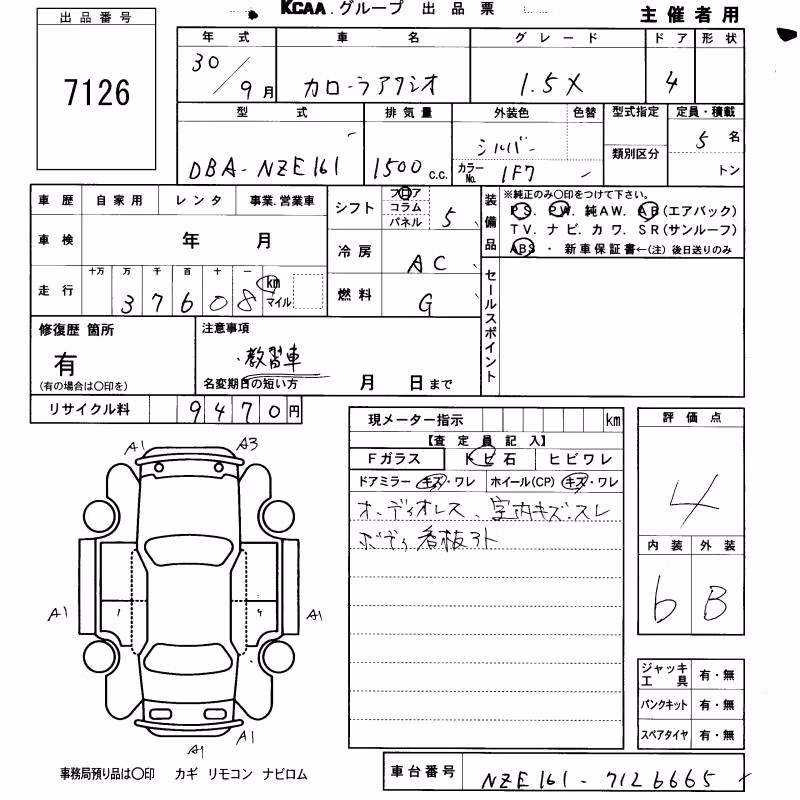 KCAA.グループ 出品票 主催者用
出品番号
7126
年式 車名 グレード ドア 形状
30/9月 カローラアクシオ 1.5X 4
型式 排気量 外装色 色替 型式指定 定員・積載
DBA-NZE161 1500c.c. シルバー カラーNo. 1F7 類別区分 5名
トン
車歴 自家用 レンタ 事業.営業車
車検 年 月
走行 十万 万 千 百 十 一 km マイル
37608
シフト フロア コラム パネル 5
冷房 AC
燃料 G
装備品 ※純正のみ○印をつけて下さい。
PS. PW. 純AW. AB(エアバック)
TV. ナビ. カワ. SR(サンルーフ)
ABS ・ 新車保証書←(注)後日送りのみ
セールスポイント
修復歴 箇所
有
(有の場合は○印を)
注意事項
・教習車
名変期日の短い方 月 日まで
リサイクル料 9470円
現メーター指示 km
【査定員記入】
Fガラス トビ石 ヒビワレ
ドアミラー キズ・ワレ ホイール(CP) キズ・ワレ
オーディオレス、室内キズ・スレ
ボディ看板アト
評価点
4
内装 外装
b B
ジャッキ工具 有・無
パンクキット 有・無
スペアタイヤ 有・無
A1 A3
1 4
A1 A1
A1 A1
事務局預り品は○印 カギ リモコン ナビロム
車台番号 NZE161-7126665